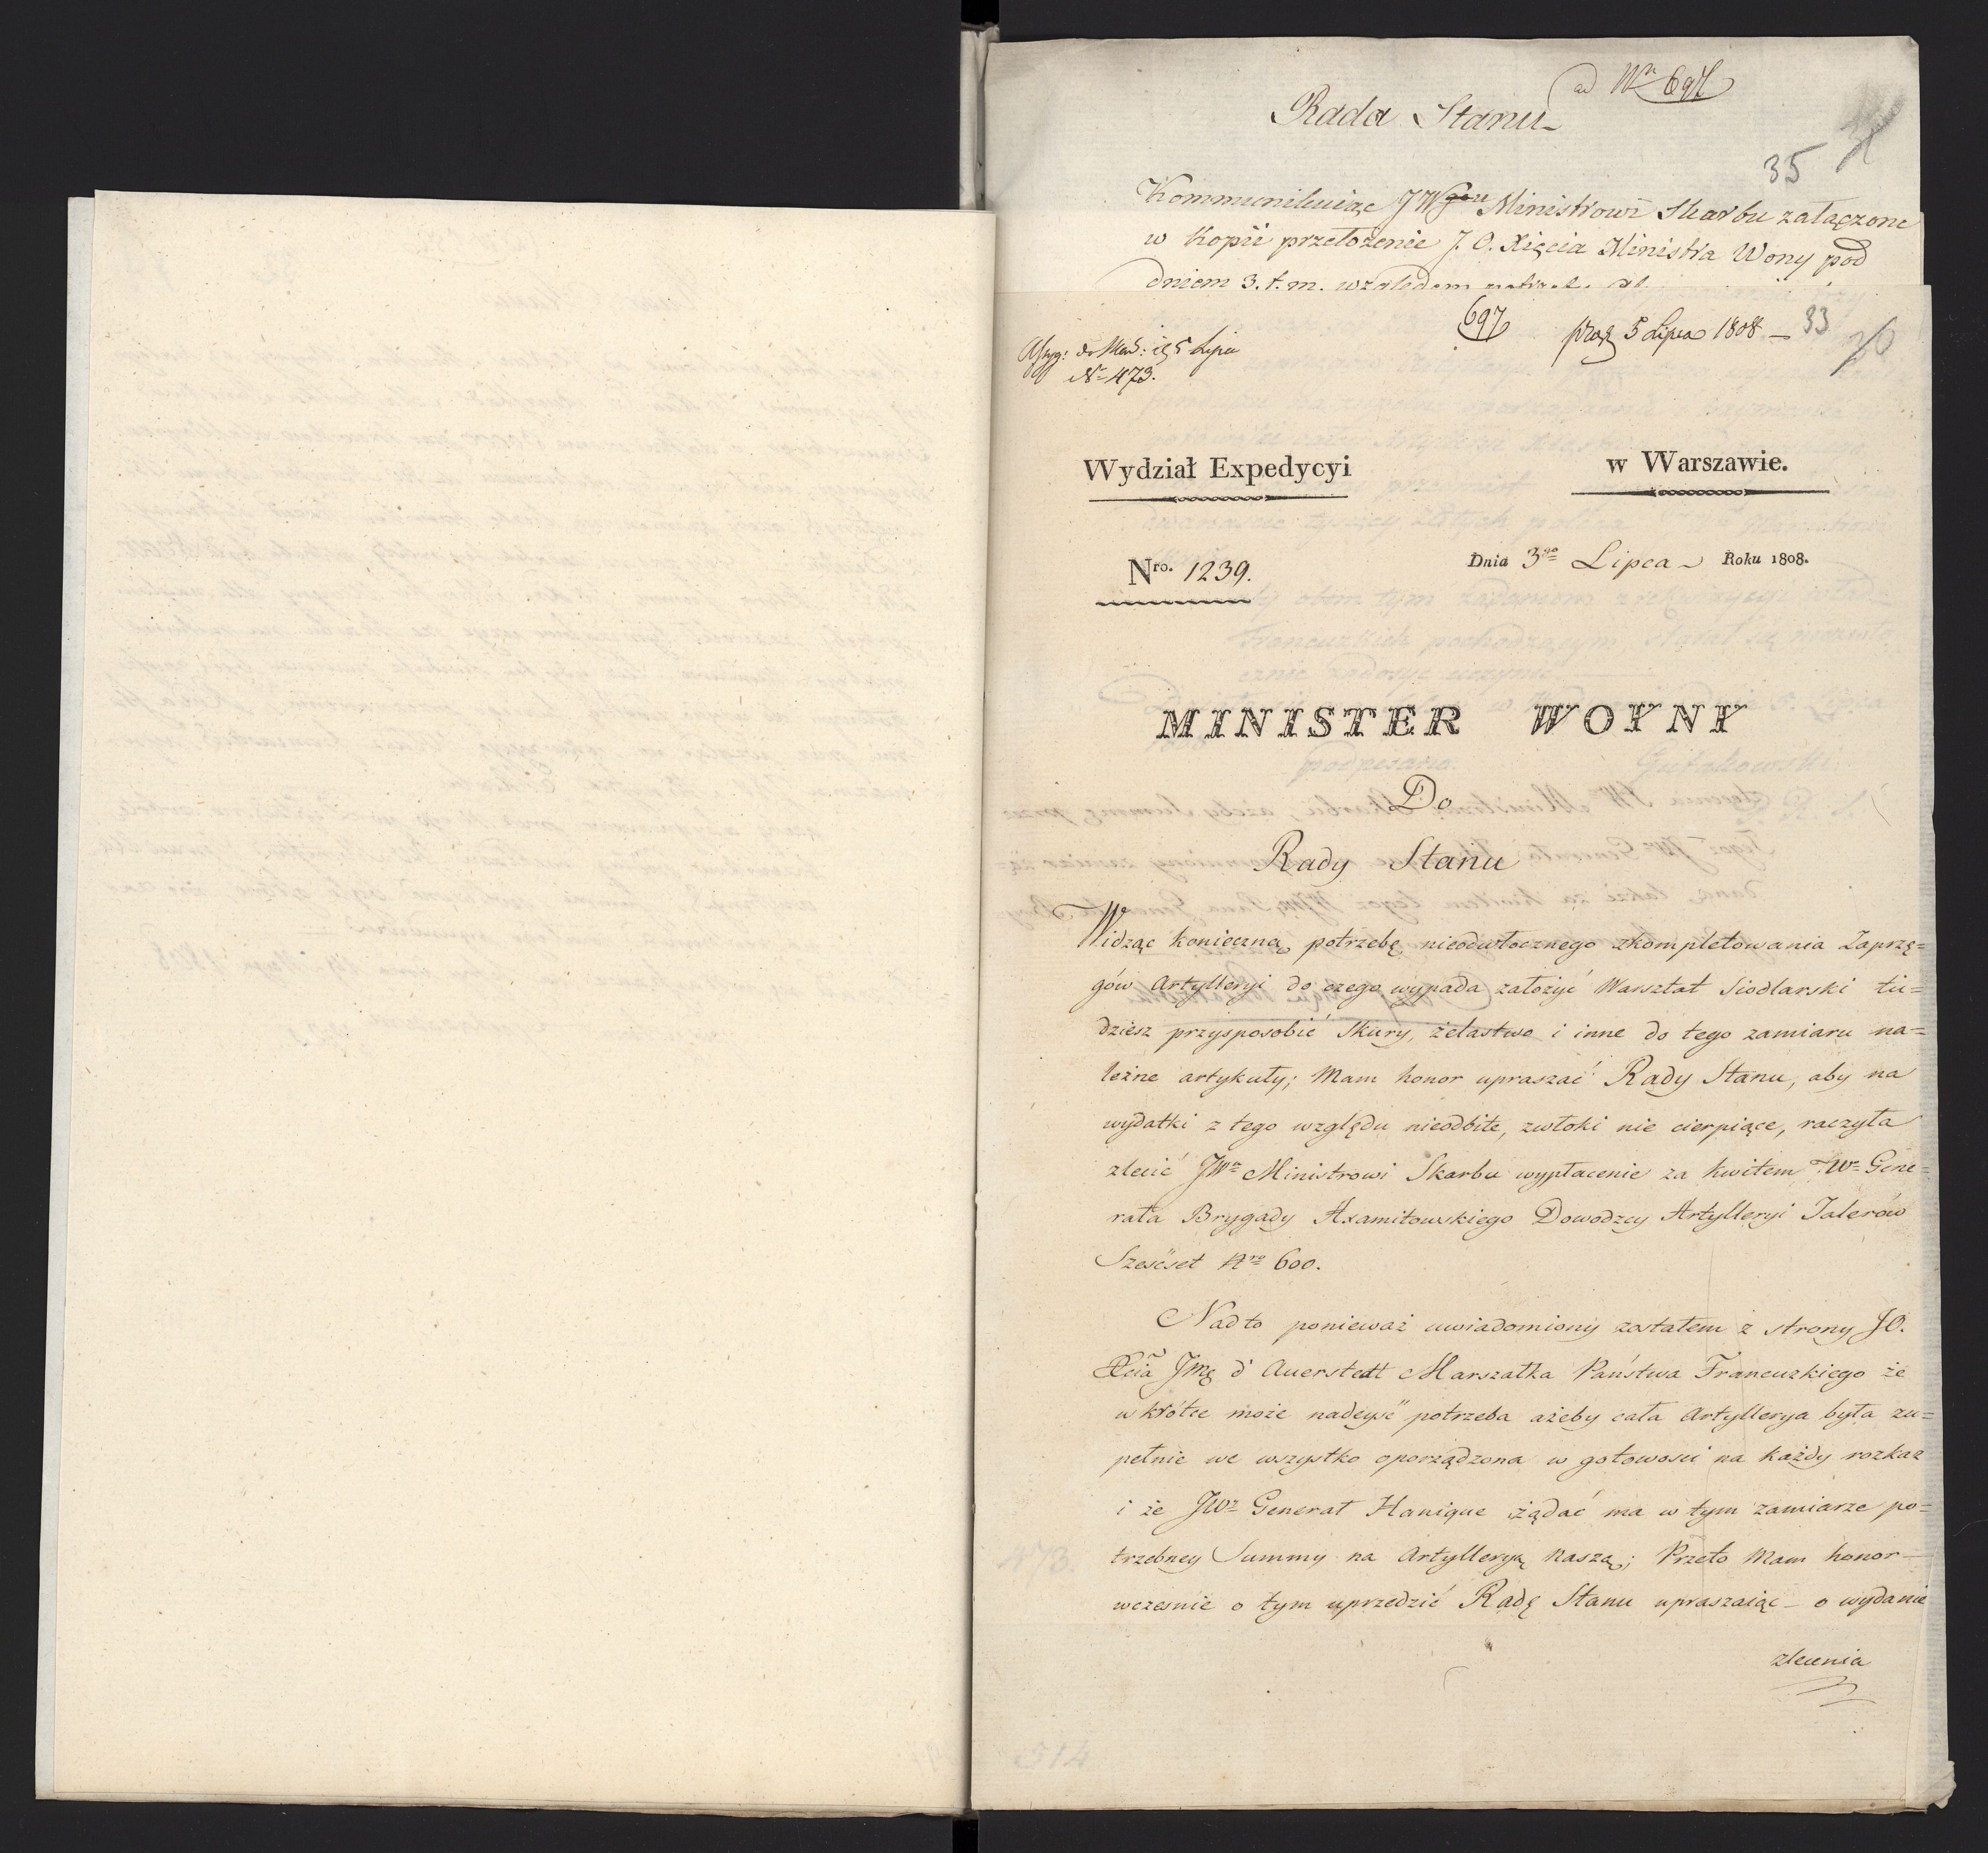 ad Nr 697
Rada Stanu
35
Kommunikuiąc JW Ministrowi Skarbu załączone
w kopii przełożenie J. O. Xięcia Ministra Wony pod
dniem 3. t. m. względem
697
praes 5 Lipca 1808 — 33
Assyg: do Men: 5 Lipca
Nr 473.
Wydział Expedycyi
w Warszawie.
Nro. 1239.
Dnia 3go Lipca Roku 1808.
MINISTER WOYNY
Do
Rady Stanu
Widząc konieczną potrzebę nieodwłocznego skompletowania Zaprzę=
gów Artylleryi do czego wypada założyć Warsztat Siodlarski tu=
dziesz przysposobić Skury, żelastwo i inne do tego zamiaru na=
leżne artykuły; Mam honor upraszać Rady Stanu, aby na
wydatki z tego względu nieodbite, zwłoki nie cierpiące, raczyła
zlecić JWu Ministrowi Skarbu wypłacenie za kwitem JWo Gene=
rała Brygady Axamitowskiego Dowodzcy Artylleryi Talerów
Sześćset Nro 600.
Nadto ponieważ uwiadomiony zostałem z strony JO.
Xcia Jmę d' Auerstedt Marszałka Państwa Francuzkiego że
w krótce może nadeyść potrzeba ażeby cała Artyllerya była zu=
pełnie we wszystko oporządzona w gotowości na każdy rozkaz
i że JWy Generał Hanique żądać ma w tym zamiarze po=
trzebney Summy na Artylleryą naszą; Przeto Mam honor
wcześnie o tym uprzedzić Radę Stanu upraszaiąc — o wydanie
zlecenia